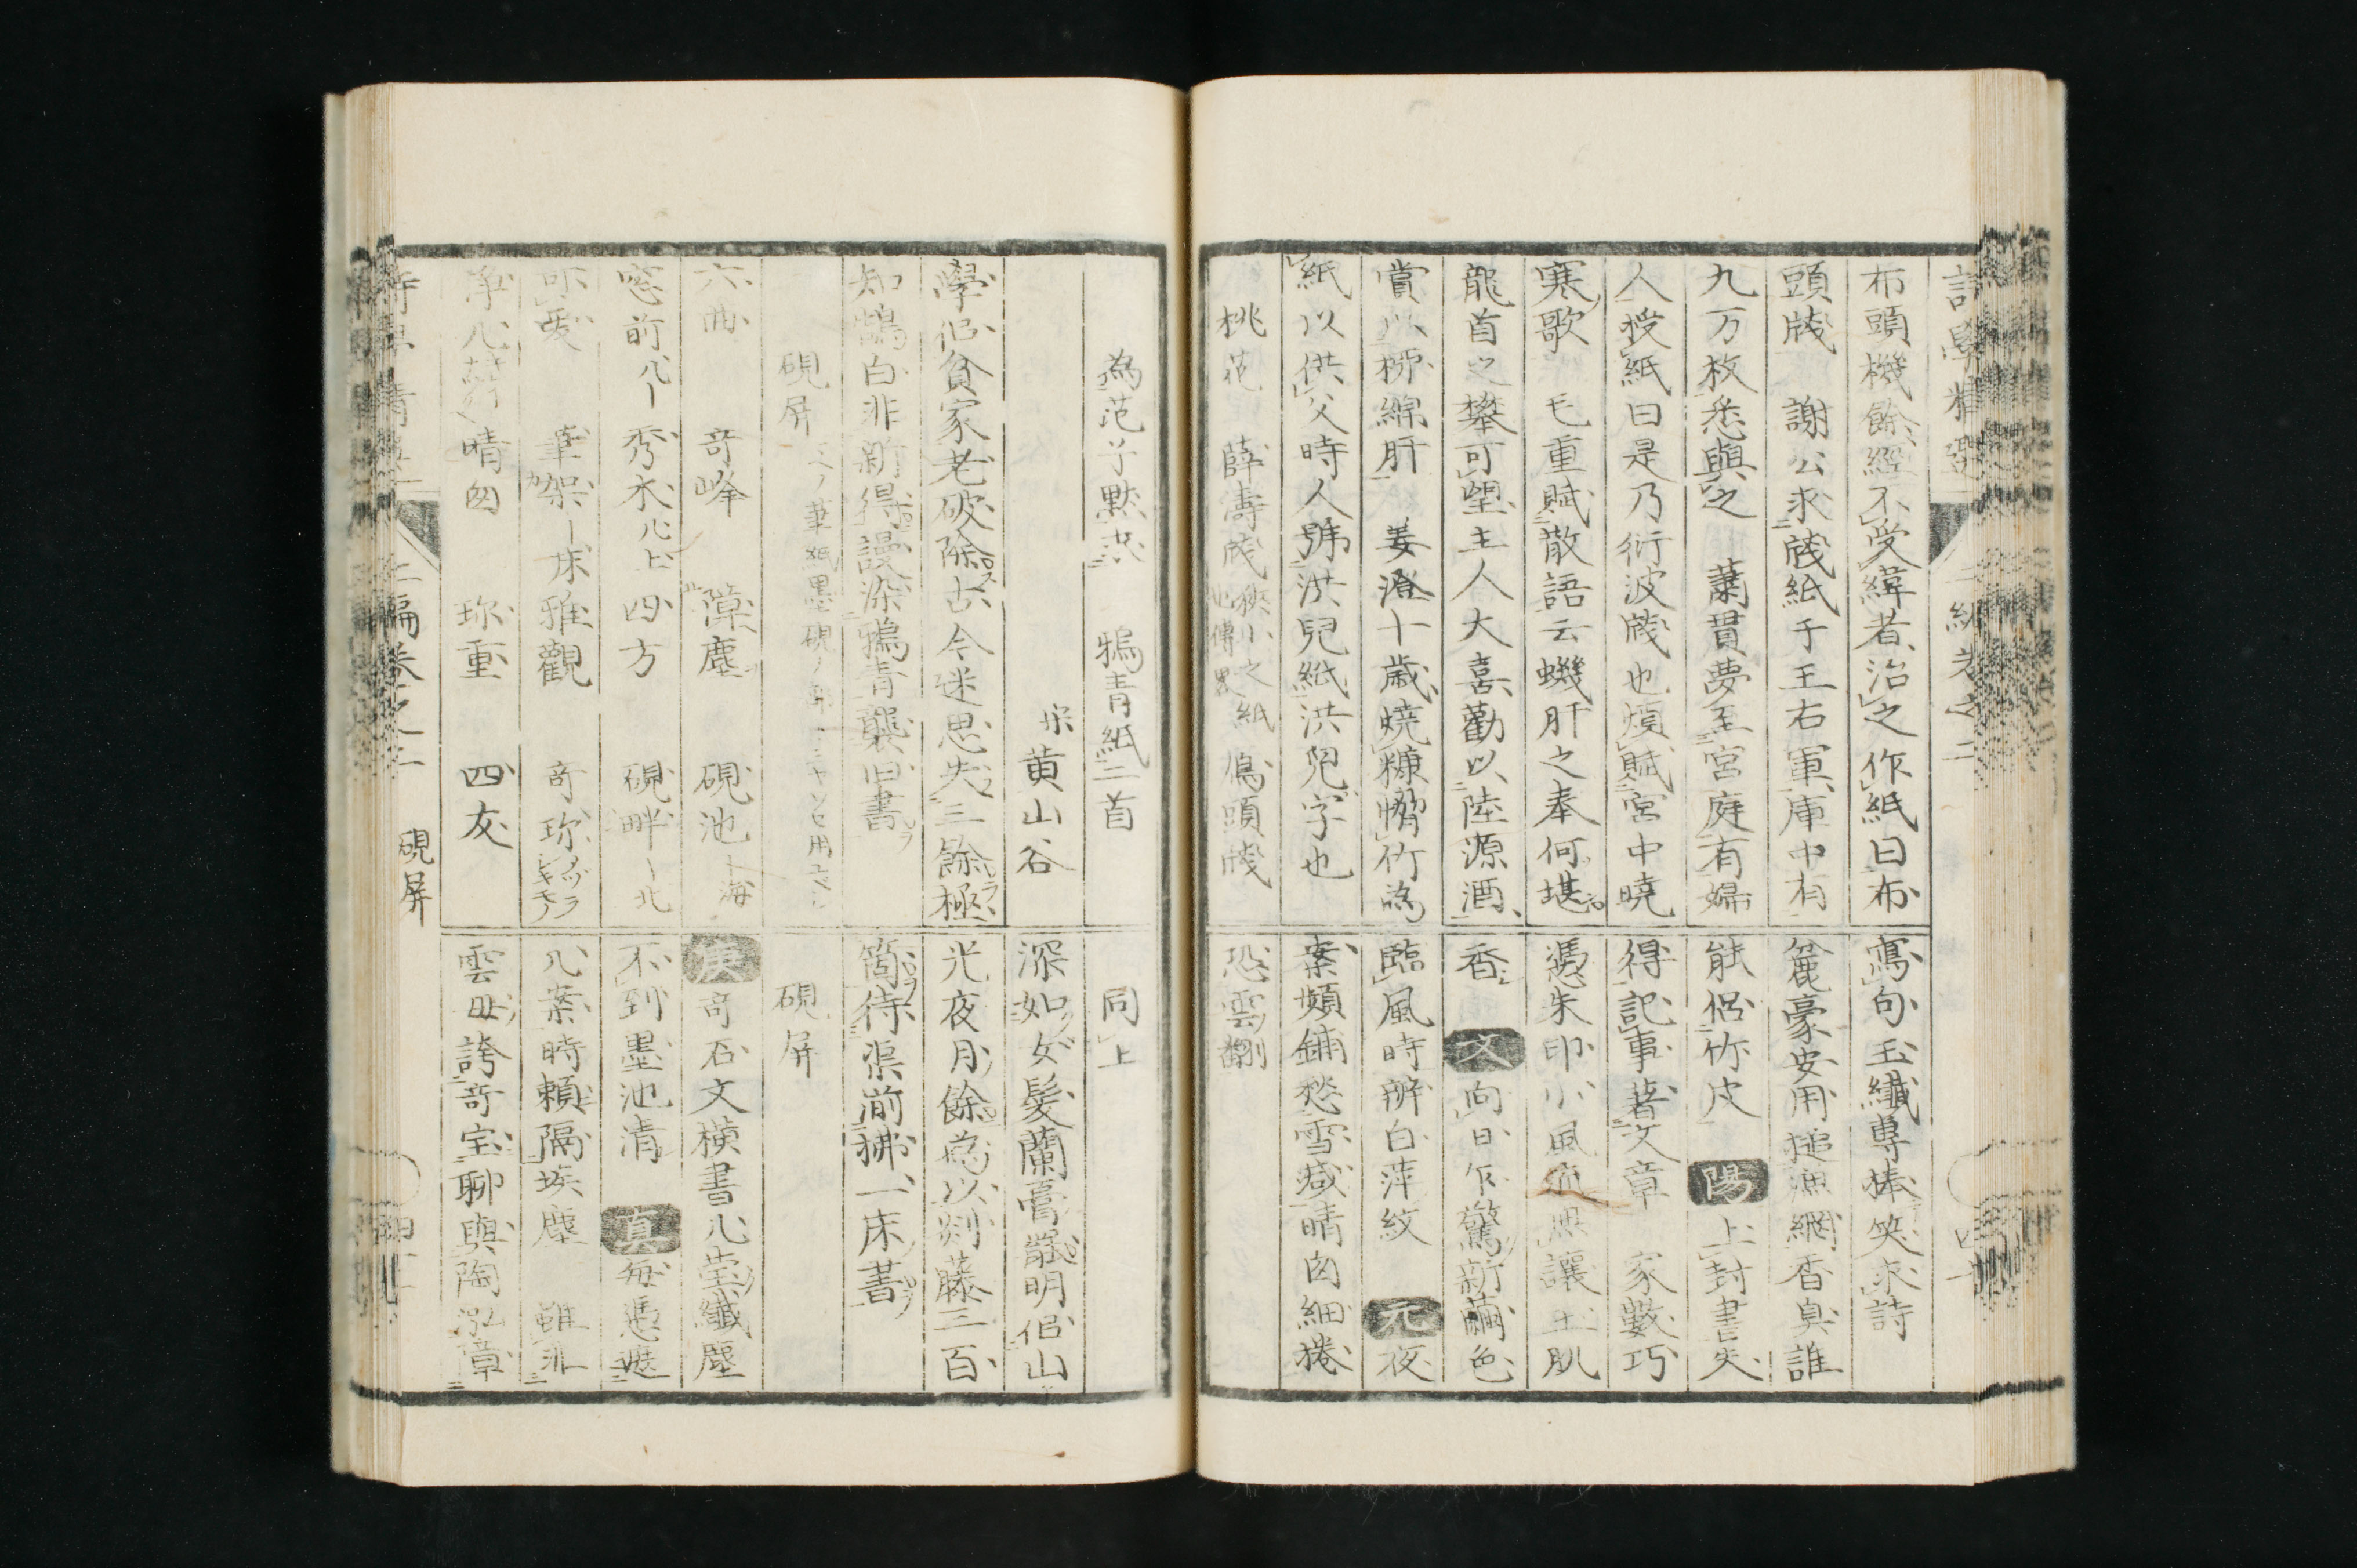 布頭機餘經不受緯者治之作紙曰布
頭牋　謝公求牋紙于王右軍庫中有
九万枚悉與之　蕭貫夢至宮庭有婦
人授紙曰是乃衍波牋也煩賦宮中曉
寒歌　毛重賦散語云蟣肝之奉何堪
龍首之攀可望主人大喜勸以陸源酒
賞以桺綿肝　姜澄十歳燒糠㡓竹為
紙以供父時人號洪兒紙洪兒字也
桃花　薛濤牋狹小之紙　鳥頭牋
寫句玉纖專捧笑求詩
麄豪安用搥漁網香臭誰
能侶竹皮　陽　上封書失
得記事著文章　家數巧
憑朱印小風流無讓玉肌
香　文　向日乍驚新繭色
臨風時辨白萍紋　元　夜
案頻鋪愁雪減晴囱細捲
恐雲翻
為范子默求　鴉青紙二首
宋黄山谷
學侶貧家老破除古今迷忘失三餘極
知鵠白非新得謾染鴉青襲旧書
硯屏
六曲　奇峰　障塵　硯池｜海
窓前几｜秀水几上四方　硯畔｜北
可愛　筆架｜床雅觀　奇珎メヅラ
淨几　晴囱　珎重　四友
同上
深如女髮蘭膏罷明侶山
光夜月餘為以剡藤三百
箇待渠湔拂一床書
硯屏
庚　奇石文横書几瑩纖塵
不到墨池清　真　每憑遮
几案時頼隔埃塵　雖非
雲母誇奇宝聊與陶泓障
硯屏